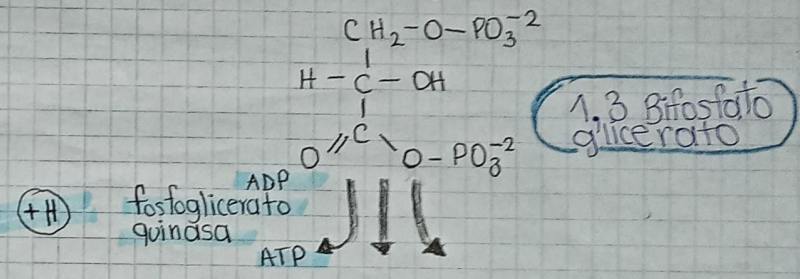 CH₂-O-PO₃⁻²
H-C-OH
C
O O-PO₃⁻²
1,3 Bifosfato
glicerato
ADP
+H fosfoglicerato
quinasa
ATP